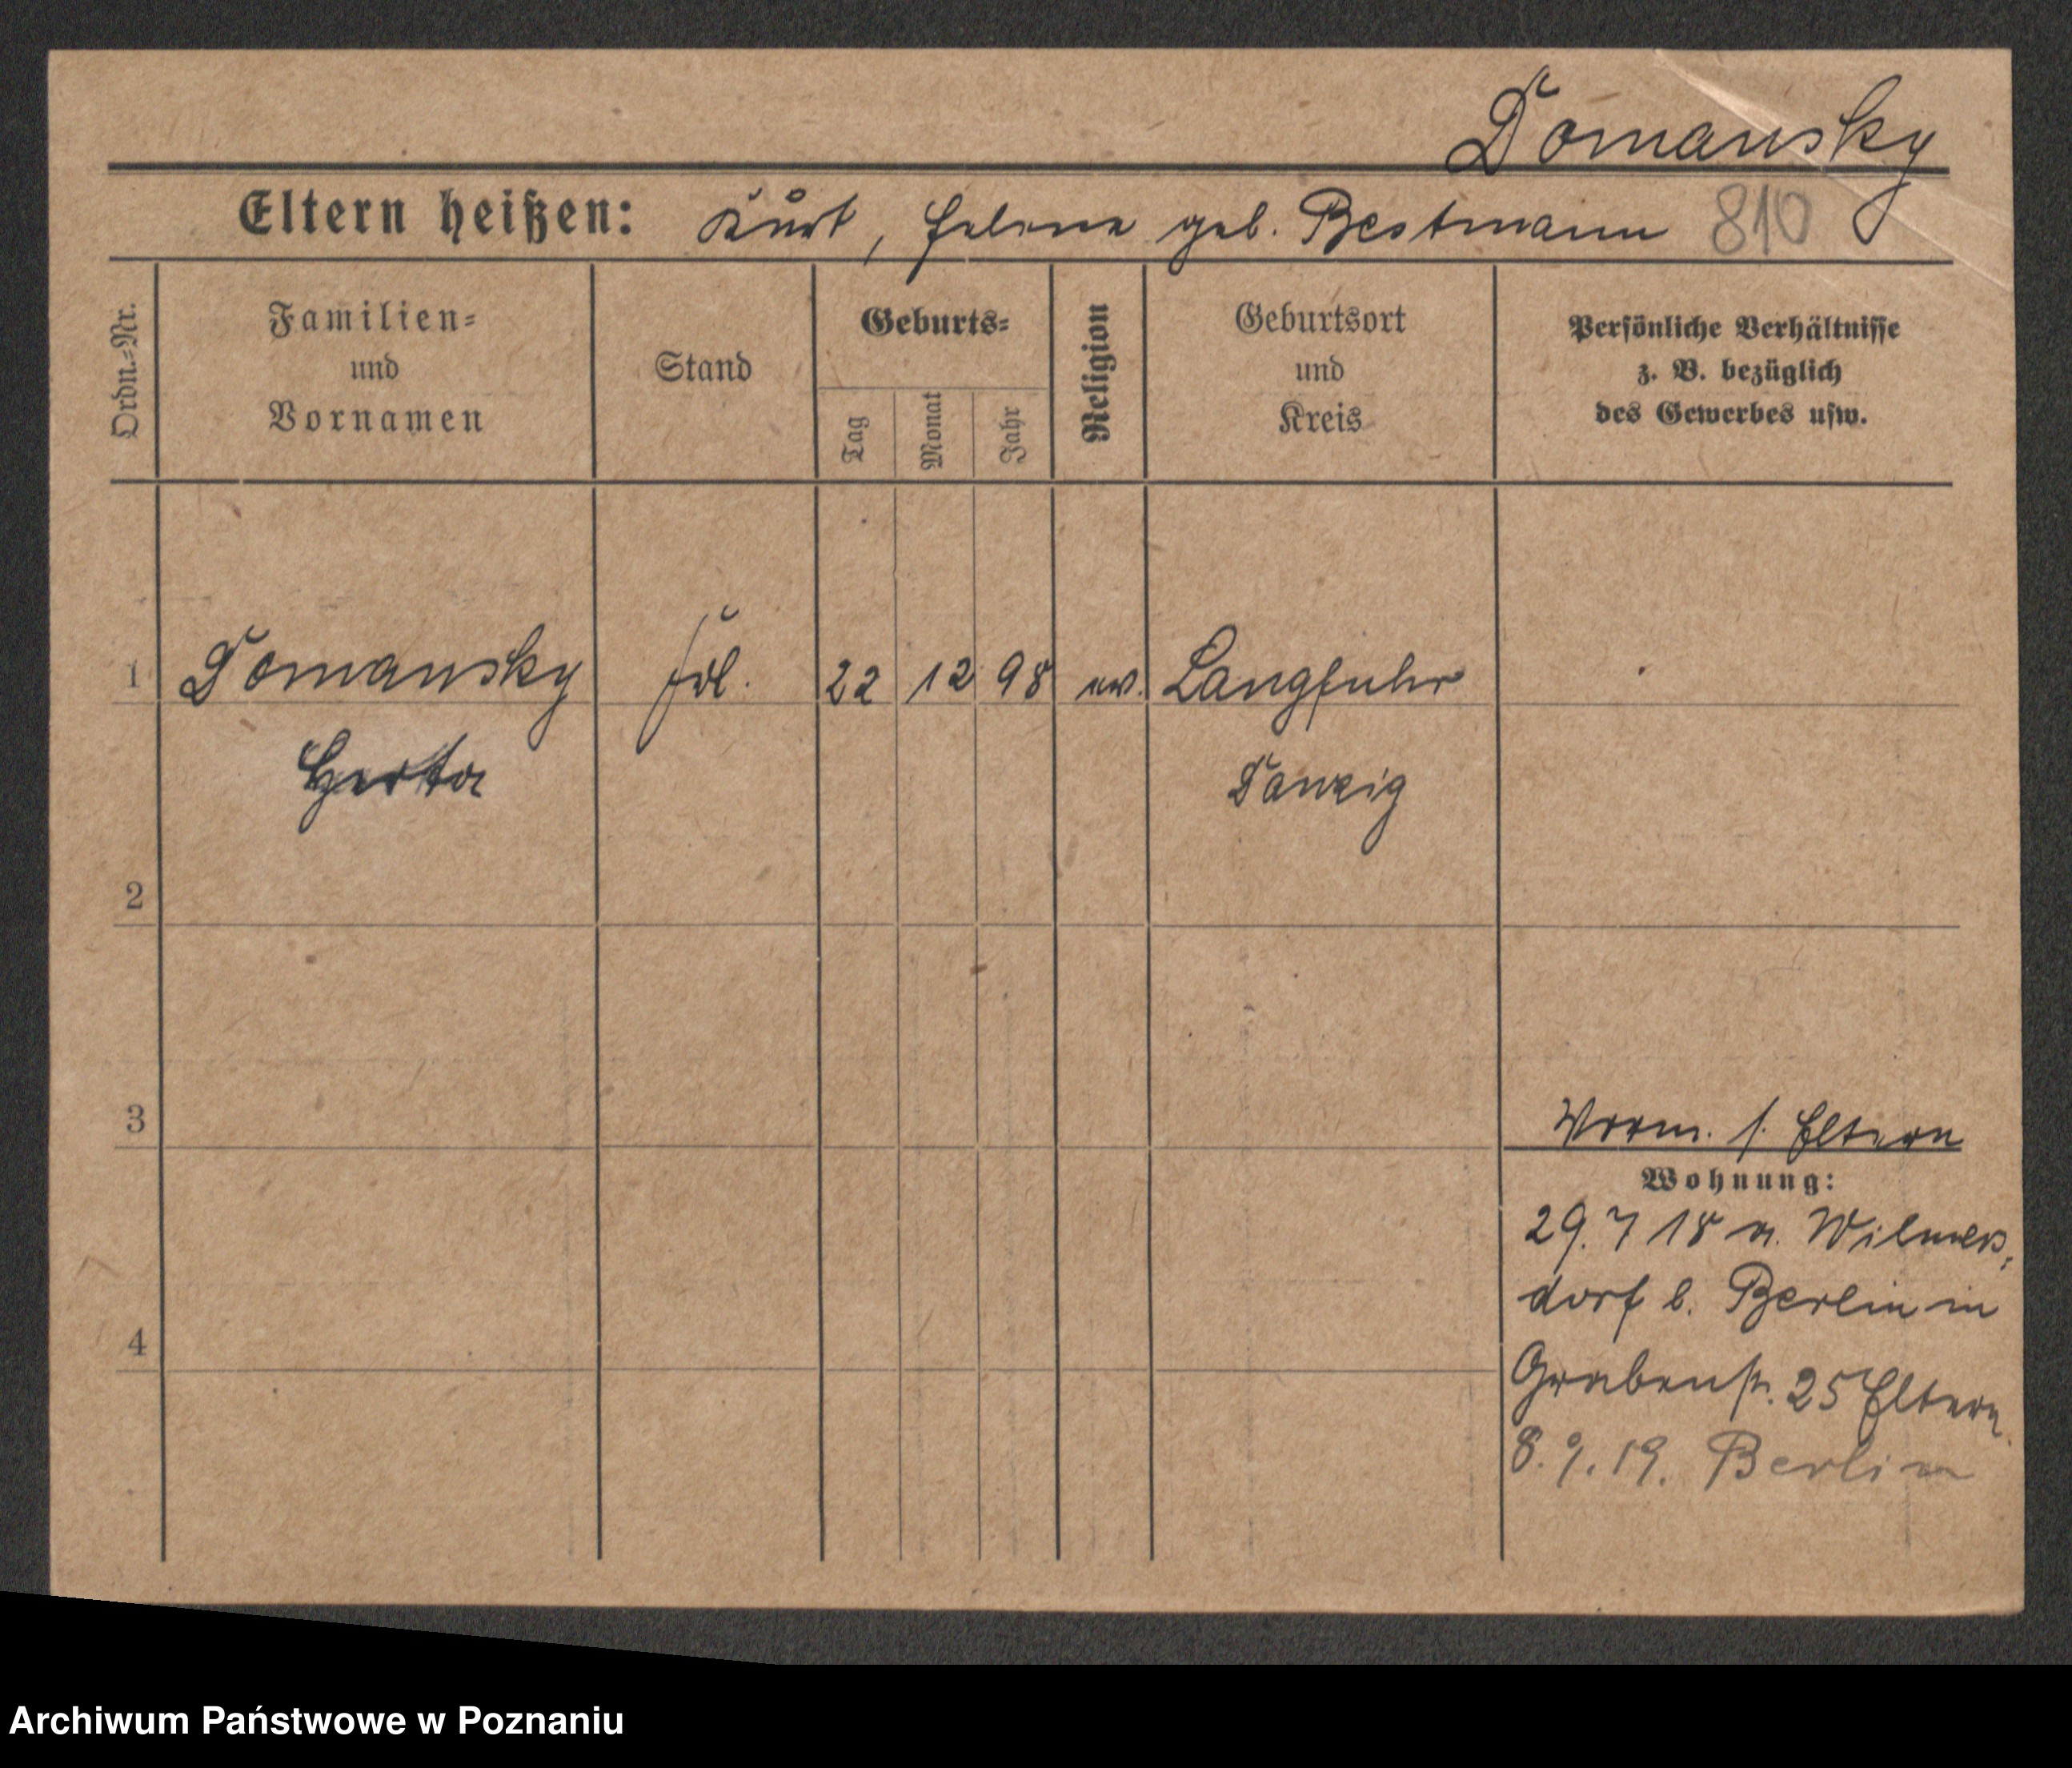 Domansky
Eltern heißen: Kurt, Helene geb. Bestmann 810
Ordn.=Nr.
Familien=
und
Vornamen
Stand
Geburts=
Tag
Monat
Jahr
Religion
Geburtsort
und
Kreis
Persönliche Verhältnisse
z. B. bezüglich
des Gewerbes usw.
1 Domansky Frl. 22 12 98 ev. Langfuhr
Herta Danzig
2
3
Vorm. s. Eltern
Wohnung:
29. 7 18 n. Wilmers-
dorf b. Berlin in
4
Grabenstr. 25 Eltern
8. 9. 19. Berlin
Archiwum Państwowe w Poznaniu